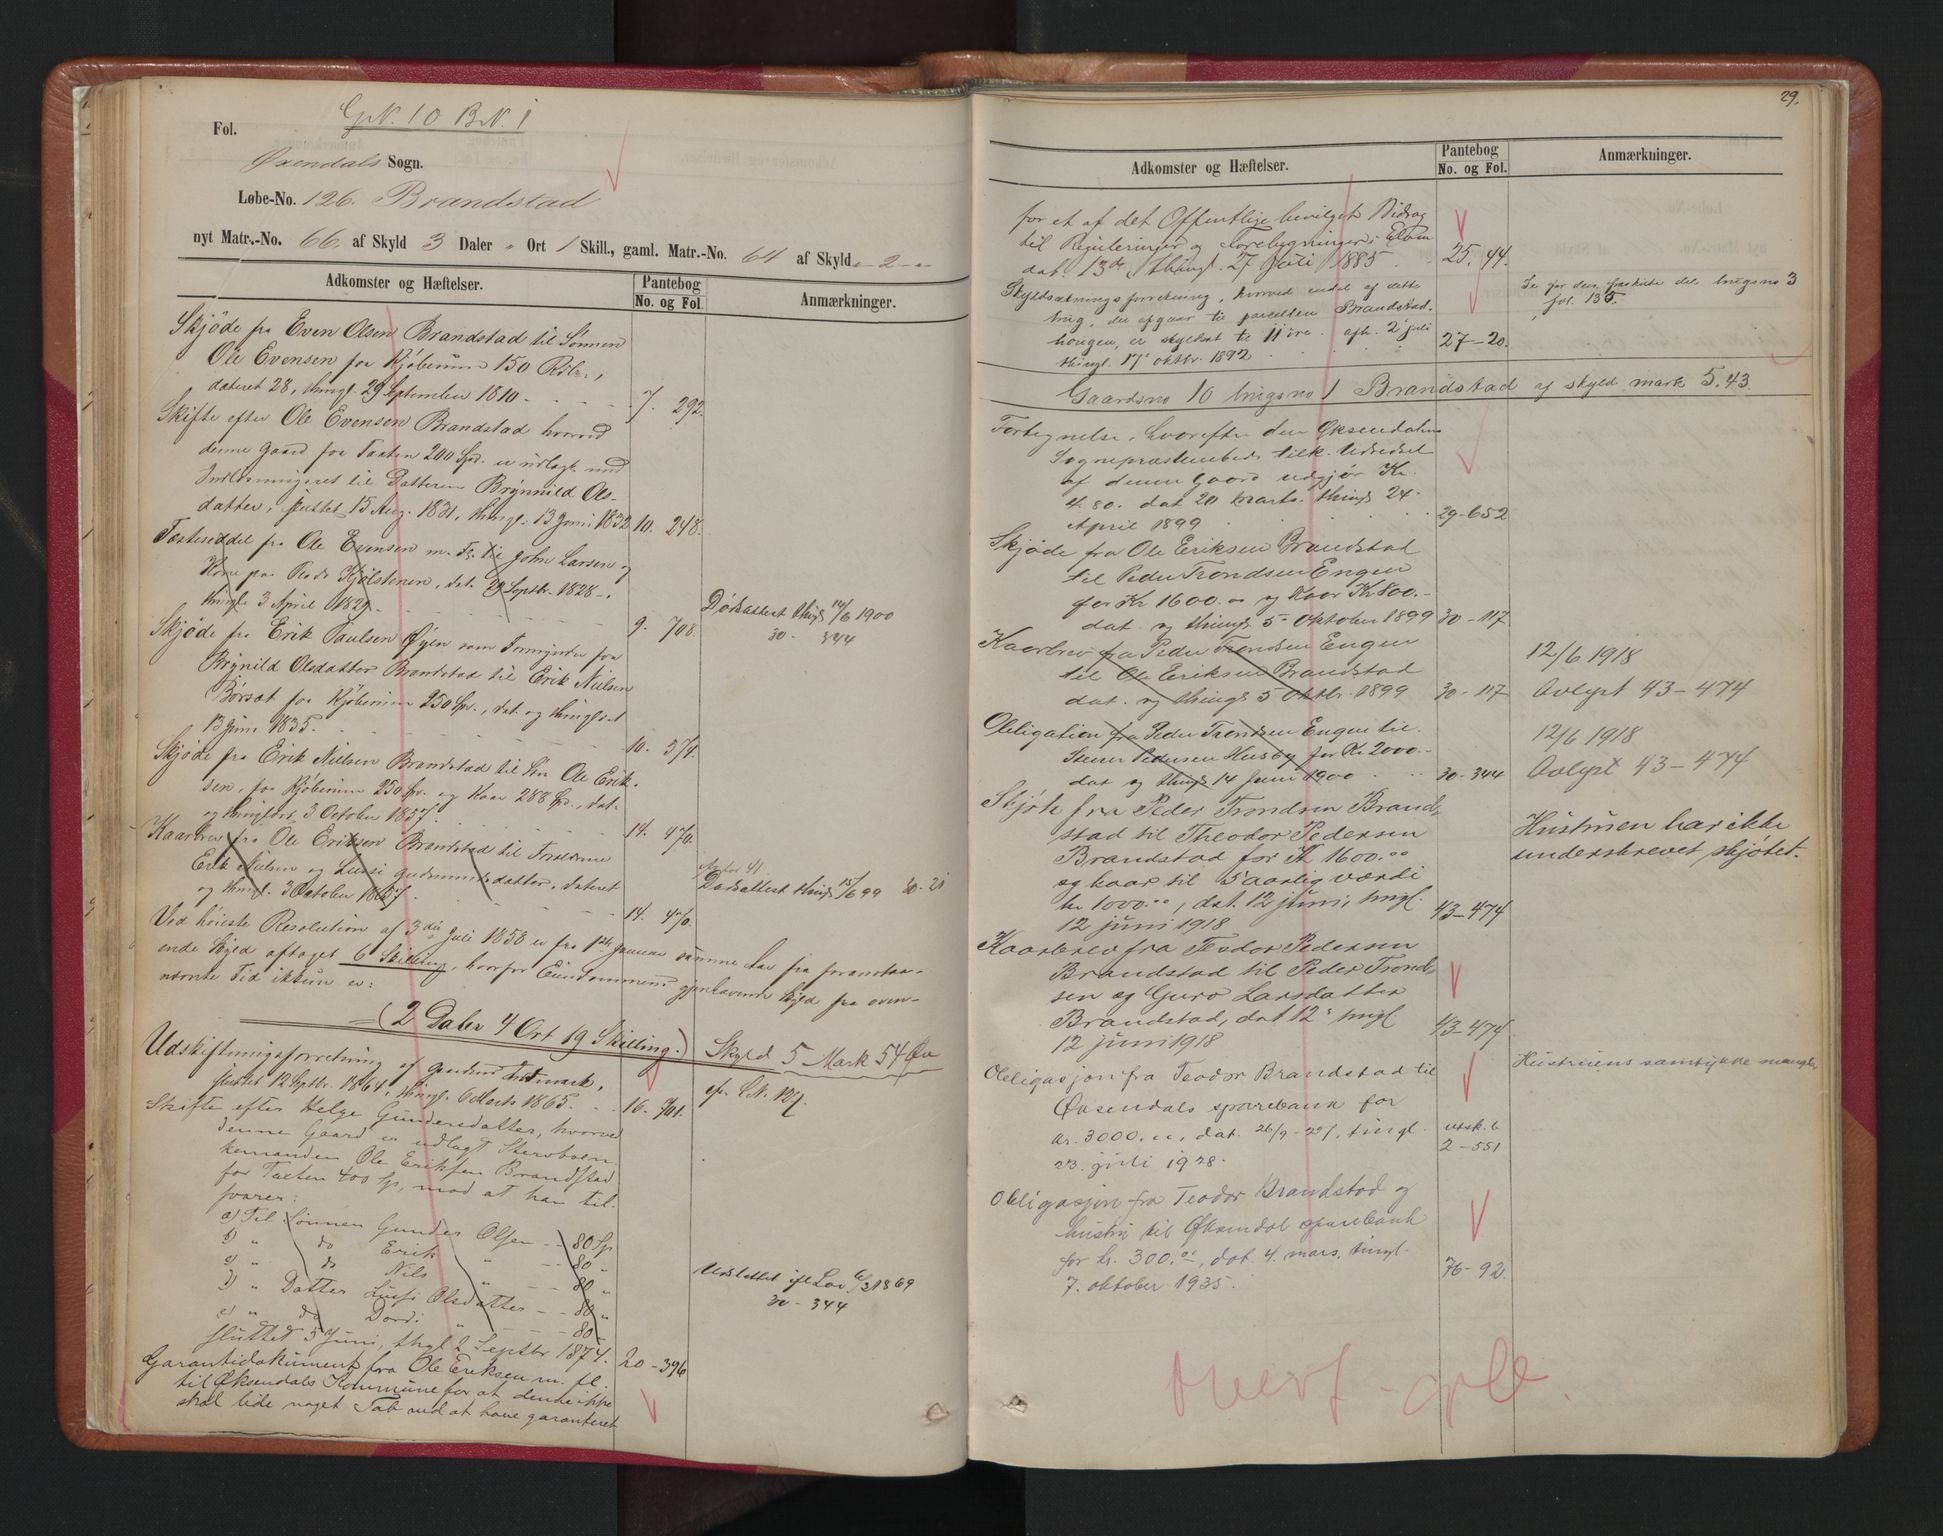 GrN. 10 BrN. 1
Fol.
Øxendals Sogn.
Løbe-No. 126. Brandstad
nyt Matr.-No. 66. af Skyld 3 Daler " Ort 1 Skill., gaml. Matr.-No. 64 af Skyld " - 2 - "
Adkomster og Hæftelser. Pantebog No. og Fol. Anmærkninger.
Skjøde fra Even Olsen Brandstad til Sønnen
Ole Evensen for Kjøbesum 150 Rdlr.,
dateret 28, thingl. 29 September 1810. 7. 292.
Skifte efter Ole Evensen Brandstad hvorved
denne Gaard for Taxten 200 Spd. er udlagt med
Indløsningsret til Datteren Brynnild Ols-
datter, sluttet 15 Aug. 1831, thingl. 13 Juni 1832 10. 248.
Fæsteseddel fra Ole Evensen m. Fl. til John Larsen og
Kone paa Plads Kjølstenen, dat. 29 Septbr. 1828.
thingl. 3 April 1829. 9. 708.
Dødsattest thingl. 14/6 1900
30 - 344
Skjøde fra Erik Paulsen Øyen som Formynder for
Brynild Olsdatter Brandstad til Erik Nielsen
Børsæt for Kjøbesum 250 Sp., dat. og thinglæst
13 Juni 1835. 10. 574.
Skjøde fra Erik Nielsen Brandstad til Søn Ole Erik-
sen, for Kjøbesum 250 Sp. og Kaar 288 Sp., dat.
og thinglæst 3 October 1857. 14. 470.
Kaarbrev fra Ole Eriksen Brandstad til Forældrene
Erik Nielsen og Lussi Gudmundsdatter, dateret
og thingl. 3 October 1857. 14. 470.
Dødsattest thingl. 15/6 99 30 - 21
Ved høieste Resolution af 3die Juli 1858 er fra 1ste Januar samme Aar fra foranstaa-
ende Skyld aftaget 6 Skilling, hvorfor Eiendommens gjenhavende Skyld fra oven-
nævnte Tid ikkun er:
(2 Daler 4 Ort 19 Skilling.) Skyld 5 Mark 54 Øre
Udskiftningsforretning af gaardens Indmark,
sluttet 12 Septbr. 1864, thingl. 6 Marts 1865. 16. 701.
Skifte efter Helge Gundersdatter, hvorved
denne Gaard er udlagt Stervboen-
kemanden Ole Eriksen Brandstad
for Taxten 400 Sp, mod at han til-
svarer:
a) Til Sønnen Gunder Olsen - - 80 Sp
b) " do Erik " - - 80 "
c) " do Nils " - - 80 "
d) " Datter Lussi Olsdatter - - 80 "
e) " do Dordi " - - 80 "
sluttet 5 Juni, thgl 2 Septbr 1874. 20 - 396
Udslettet efter Lov 6/3 1869
30 - 344
Garantidokument fra Ole Eriksen m. fl.
til Øksendals Kommune for at denne ikke
skal lide noget Tab ved at have garanteret
29.
Adkomster og Hæftelser. Pantebog No. og Fol. Anmærkninger.
for et af det Offentlige bevilget Bidrag
til Reguleringer og Forebygninger i Elven
dat. 13de, thingl. 27 Juli 1885 25. 44.
Skyldsætningsforretning, hvorved endel af dette
brug, der afgaar til parcellen Brandstad-
hougen, er skyldsat til 11 øre. afh. 2 juli
thingl. 17 oktbr. 1892 27 - 20.
Se for den fraskilte del brugsno 3
fol. 135.
Gaardsno 10 brugsno 1 Brandstad af skyld mark 5.43
Fortegnelse, hvorefter den Øksendalens
Sognepræstembede tilk. Udredsel
af denne Gaard udgjør Kr.
4.80. dat 20 Marts thingl. 24
April 1899 29 - 652
Skjøde fra Ole Eriksen Brandstad
til Peder Trondsen Engen
for Kr 1600.00 og Kaar Kr 800.-
dat. og thingl 5 Oktober 1899 30 - 117
Kaarbrev fra Peder Trondsen Engen
til Ole Eriksen Brandstad
dat. og thingl 5 Oktbr. 1899 30 - 117
12/6 1918
Avlyst 43 - 474
Obligation fra Peder Trondsen Engen til
Stener Pedersen Husby for Kr 2000.-
dat og thingl 14 Juni 1900 30 - 344
12/6 1918
Avlyst 43 - 474
Skjøte fra Peder Trondsen Brand-
stad til Theodor Pedersen
Brandstad for Kr 1600.00
og kaar til 5 aarlig værdi
kr 1000.00, dat. 12 juni, tingl.
12 juni 1918 43 - 474
Hustruen har ikke
underskrevet skjøtet.
Kaarbrev fra Teodor Pedersen
Brandstad til Peder Trond-
sen og Guro Larsdatter
Brandstad, dat 12, tingl
12 juni 1918 43 - 474
Obligasjon fra Teodor Brandstad til
Øksendals sparebank for
kr. 3000.00, dat. 26/9-27, tingl.
23. juli 1928. utsk. b
2 - 551
Hustruens samtykke mangler
Obligasjon fra Teodor Brandstad og
hustru til Øksendal sparebank
for kr. 300.00, dat. 4. mars, tingl.
7. oktober 1935. 76 - 92.